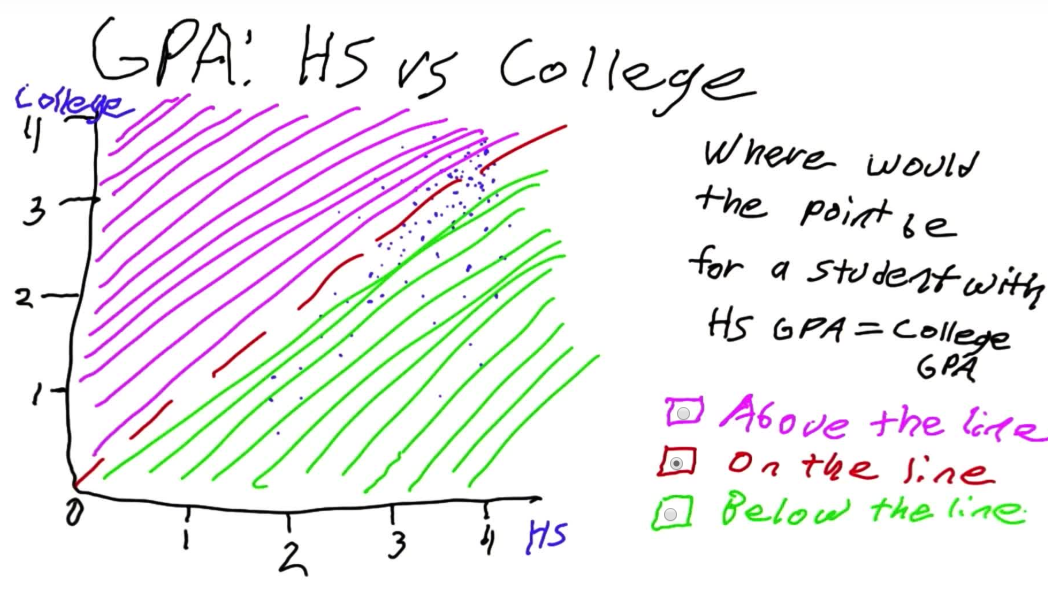 GPA: HS vs College
College
4
3
2
1
0
1
2
3
4
HS
Where would
the point be
for a student with
HS GPA = College
GPA
Above the line
On the line
Below the line